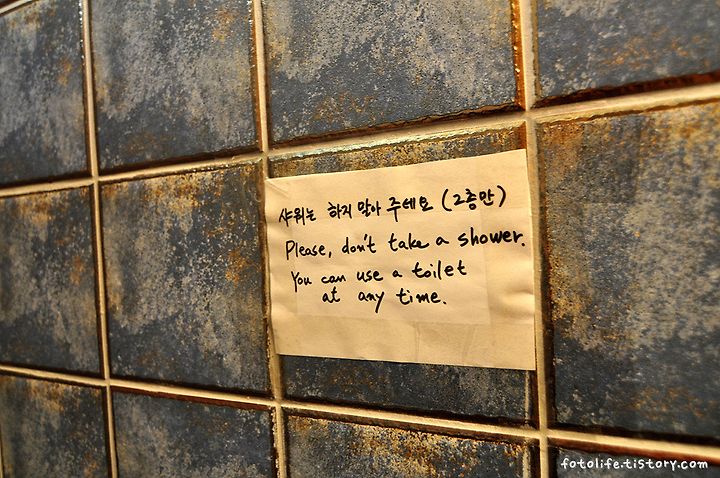 샤워는 하지 말아 주세요 (2층만)
Please, don't take a shower.
You can use a toilet
at any time.
fotolife.tistory.com